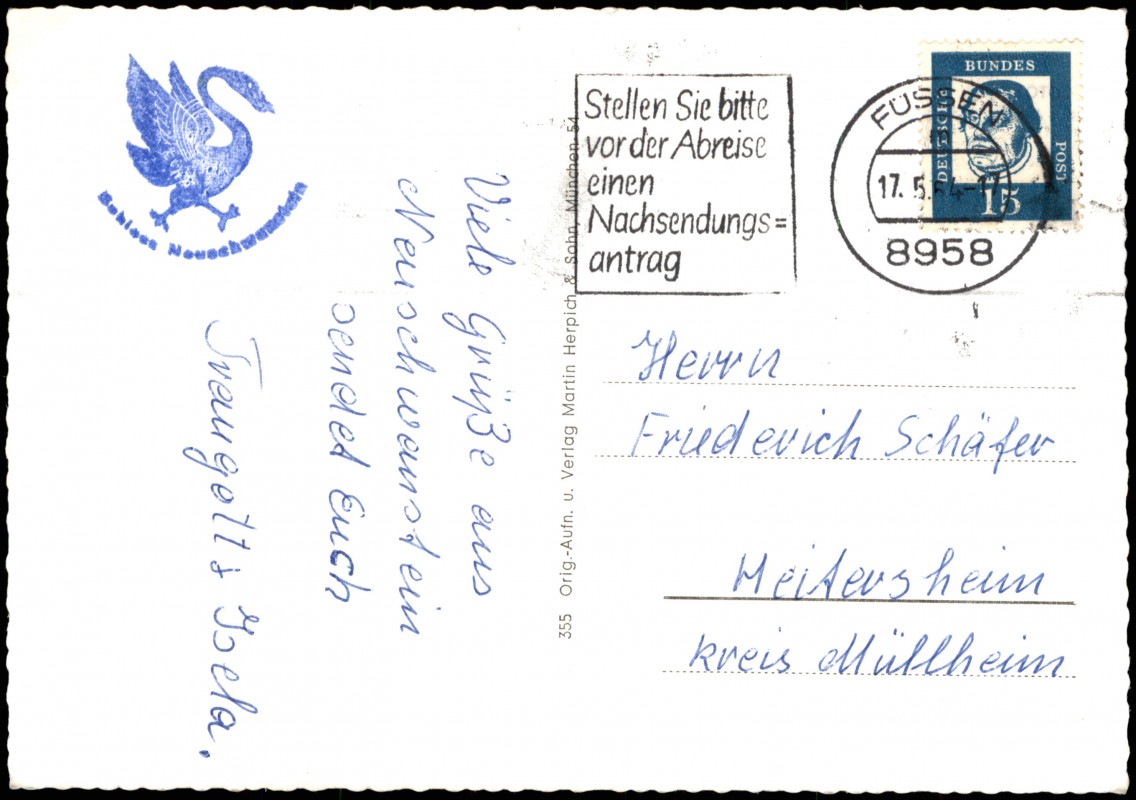 Schloss Neuschwanstein
Viele Grüße aus
Neuschwanstein
sendet Euch
Traugott & Isela.
355 Orig.-Aufn. u. Verlag Martin Herpich & Sohn, München 54
Stellen Sie bitte
vor der Abreise
einen
Nachsendungs=
antrag
FÜSSEN
17. 5.64-17
8958
DEUTSCHE BUNDES POST
15
Herrn
Friederich Schäfer
Heitersheim
Kreis Müllheim